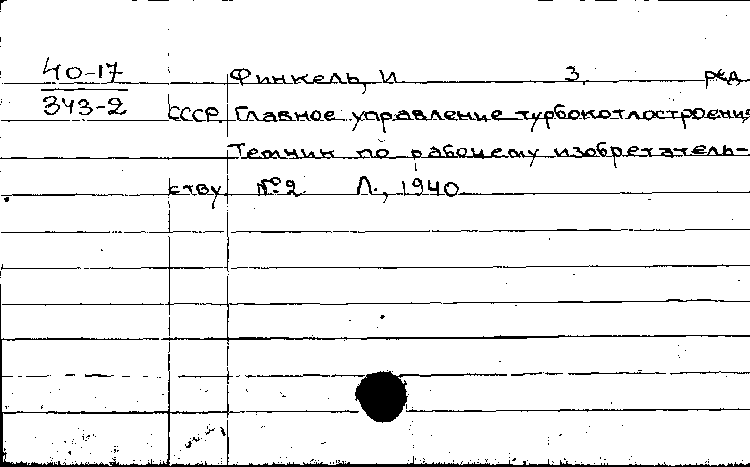 40-17
343-2
Финкель, И. З. ред.
СССР. Главное управление турбокотлостроения
Темник по рабочему изобретатель-
ству. № 2 Л., 1940